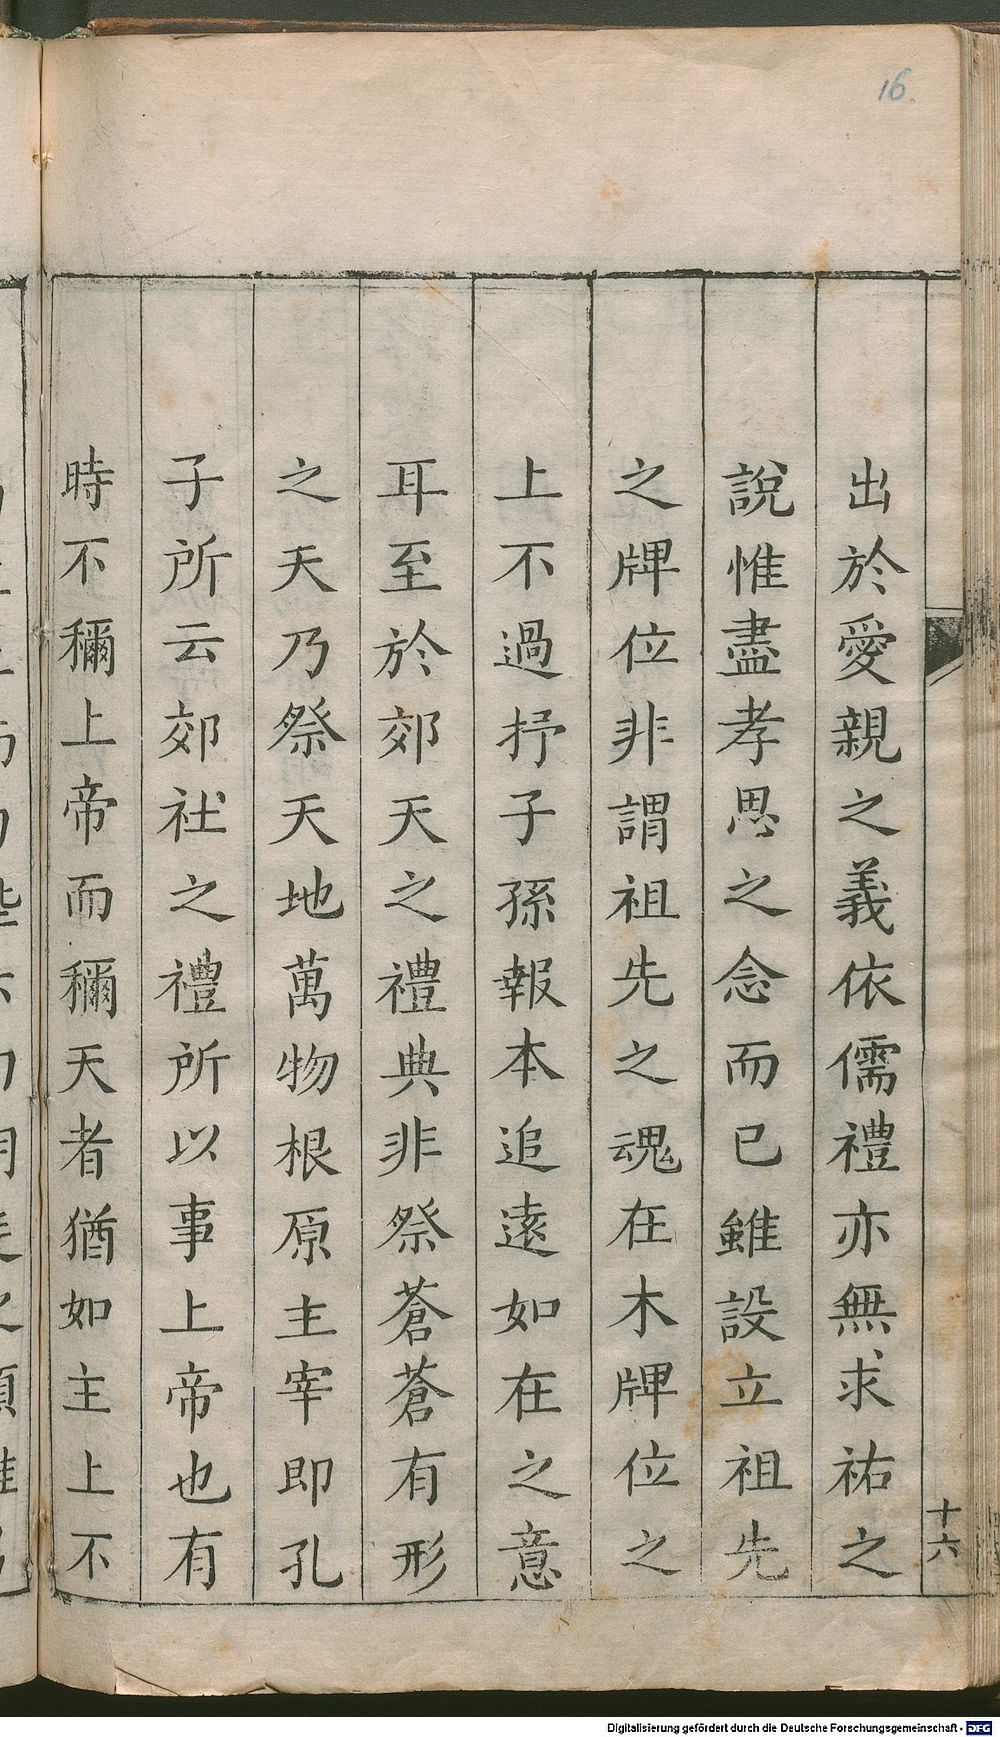 16.
出於愛親之義依儒禮亦無求祐之
說惟盡孝思之念而已雖設立祖先
之牌位非謂祖先之魂在木牌位之
上不過抒子孫報本追遠如在之意
耳至於郊天之禮典非祭蒼蒼有形
之天乃祭天地萬物根原主宰即孔
子所云郊社之禮所以事上帝也有
時不稱上帝而稱天者猶如主上不
十六
Digitalisierung gefördert durch die Deutsche Forschungsgemeinschaft - DFG